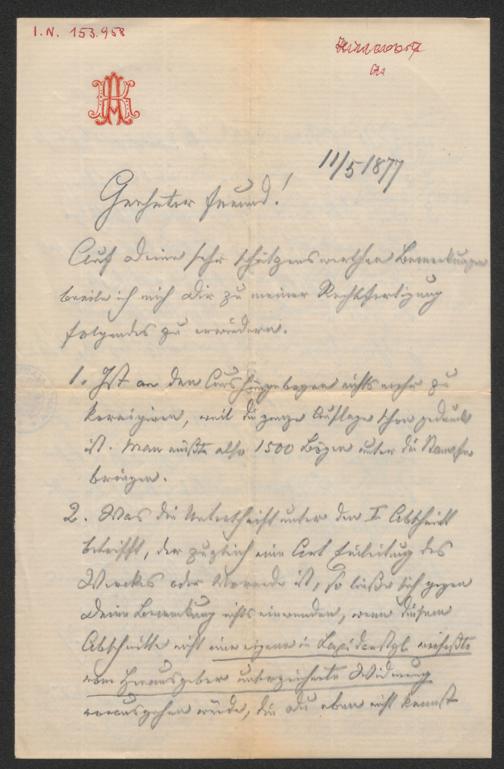 I.N. 153.958
AK
11/5 1877
Geehrter Freund!
Auf Deine sehr schätzenswerthen Bemerkungen
beeile ich mich Dir zu meiner Rechtfertigung
folgendes zu erwiedern.
1. Ist an den Aushängebogen nichts mehr zu
korrigiren, weil die ganze Auflage schon gedruckt
ist. Man müßte also 1500 Bögen unter die Stampfe
bringen.
2. Was die Unterschrift unter dem I Abschnitt
betrifft, der zugleich eine Art Einleitung des
Werkes oder Vorrede ist, so ließe sich gegen
Deine Bemerkung nichts einwenden, wenn diesem
Abschnitte nicht eine eigene in Lapidarstyl verfaßte
vom Herausgeber unterzeichnete Widmung
vorausgehen würde, die Du eben nicht kennst